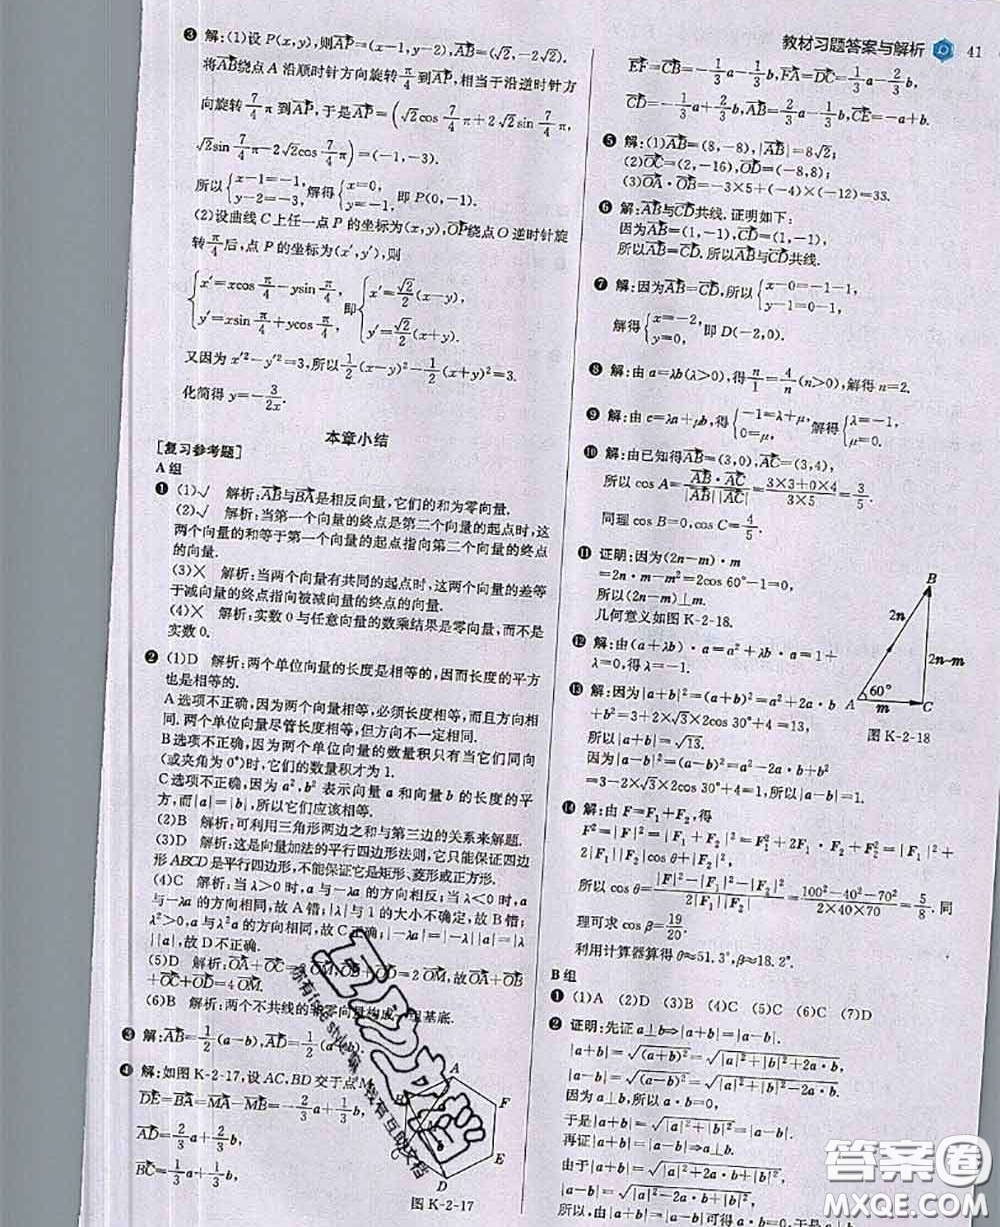 教材习题答案与解析 41
❸ 解:(1)设 P(x,y),则AP=(x-1,y-2),AB=(√2,-2√2).
将AB绕点 A 沿顺时针方向旋转π/4到AP,相当于沿逆时针方
向旋转7/4π到AP,于是AP=(√2cos7/4π+2√2sin7/4π,
√2sin7/4π-2√2cos7/4π)=(-1,-3).
所以{x-1=-1, y-2=-3,解得{x=0, y=-1,即 P(0,-1).
(2)设曲线 C 上任一点 P 的坐标为(x,y),OP绕点 O 逆时针旋
转π/4后,点 P 的坐标为(x′,y′),则
{x′=xcosπ/4-ysinπ/4, y′=xsinπ/4+ycosπ/4,即{x′=√2/2(x-y), y′=√2/2(x+y).
又因为 x′²-y′²=3,所以1/2(x-y)²-1/2(x+y)²=3.
化简得 y=-3/2x.
本章小结
[复习参考题]
A 组
❶ (1)√ 解析:AB与BA是相反向量,它们的和为零向量.
(2)√ 解析:当第一个向量的终点是第二个向量的起点时,这
两个向量的和等于第一个向量的起点指向第二个向量的终点
的向量.
(3)× 解析:当两个向量有共同的起点时,这两个向量的差等
于减向量的终点指向被减向量的终点的向量.
(4)× 解析:实数 0 与任意向量的数乘结果是零向量,而不是
实数 0.
❷ (1)D 解析:两个单位向量的长度是相等的,因而长度的平方
也是相等的.
A 选项不正确,因为两个向量相等,必须长度相等,而且方向相
同.两个单位向量尽管长度相等,但方向不一定相同.
B 选项不正确,因为两个单位向量的数量积只有当它们同向
(或夹角为 0°)时,它们的数量积才为 1.
C 选项不正确,因为 a²,b² 表示向量 a 和向量 b 的长度的平
方,而|a|=|b|,所以它们应该相等.
(2)B 解析:可利用三角形两边之和与第三边的关系来解题.
(3)D 解析:这是向量加法的平行四边形法则,它只能保证四边
形 ABCD 是平行四边形,不能保证它是矩形、菱形或正方形.
(4)C 解析:当λ>0 时,a 与-λa 的方向相反,当λ<0 时,a
与-λa 的方向相同,故 A 错;|λ|与 1 的大小不确定,故 B 错;
λ²>0,a 与λ²a 的方向相同,故 C 正确;|-λa|=|-λ||a|=|λ
||a|,故 D 不正确.
(5)D 解析:OA+OC=2OM,OB+OD=2OM,故OA+OB
+OC+OD=4OM.
(6)B 解析:两个不共线的非零向量构成一组基底.
❸ 解:AB=1/2(a-b),AD=1/2(a+b).
❹ 解:如图 K-2-17,设 AC,BD 交于点 M,
DE=BA=MA-MB=-2/3a+1/3b,
AD=2/3a+2/3b,
BC=1/3a+1/3b,
A
F
B
M
C
E
D
图 K-2-17
EF=CB=-1/3a-1/3b,FA=DC=1/3a-2/3b,
CD=-1/3a+2/3b,AB=2/3a-1/3b,CE=-a+b.
❺ 解:(1)AB=(8,-8),|AB|=8√2;
(2)OC=(2,-16),OD=(-8,8);
(3)OA·OB=-3×5+(-4)×(-12)=33.
❻ 解:AB与CD共线.证明如下:
因为AB=(1,-1),CD=(1,-1),
所以AB=CD.所以AB与CD共线.
❼ 解:因为AB=CD,所以{x-0=-1-1, y-1=0-1,
解得{x=-2, y=0,即 D(-2,0).
❽ 解:由 a=λb(λ>0),得n/1=4/n(n>0),解得 n=2.
❾ 解:由 c=λa+μb,得{-1=λ+μ, 0=μ,解得{λ=-1, μ=0.
❿ 解:由已知得AB=(3,0),AC=(3,4),
所以 cos A=AB·AC/|AB||AC|=3×3+0×4/3×5=3/5.
同理 cos B=0,cos C=4/5.
⓫ 证明:因为(2n-m)·m
=2n·m-m²=2cos 60°-1=0,
所以(2n-m)⊥m.
几何意义如图 K-2-18.
B
2n
2n-m
60°
A m C
图 K-2-18
⓬ 解:由(a+λb)·a=a²+λb·a=1+
λ=0,得λ=-1.
⓭ 解:因为|a+b|²=(a+b)²=a²+2a·b
+b²=3+2×√3×2cos 30°+4=13,
所以|a+b|=√13.
因为|a-b|²=(a-b)²=a²-2a·b+b²
=3-2×√3×2cos 30°+4=1,所以|a-b|=1.
⓮ 解:由 F=F₁+F₂,得
F²=|F|²=|F₁+F₂|²=F₁²+2F₁·F₂+F₂²=|F₁|²+
2|F₁||F₂|cos θ+|F₂|²,
所以 cos θ=|F|²-|F₁|²-|F₂|²/2|F₁||F₂|=100²-40²-70²/2×40×70=5/8.同
理可求 cos β=19/20.
利用计算器算得θ≈51.3°,β≈18.2°.
B 组
❶ (1)A (2)D (3)B (4)C (5)C (6)C (7)D
❷ 证明:先证 a⊥b⇒|a+b|=|a-b|.
|a+b|=√(a+b)²=√|a|²+|b|²+2a·b,
|a-b|=√(a-b)²=√|a|²+|b|²-2a·b.
因为 a⊥b,所以 a·b=0.
于是|a+b|=√|a|²+|b|²=|a-b|.
再证|a+b|=|a-b|⇒a⊥b.
由于|a+b|=√|a|²+2a·b+|b|²,
|a-b|=√|a|²-2a·b+|b|²,
所以由|a+b|=|a-b|可得 a·b=0,于是 a⊥b.
答案圈
MXQE.COM